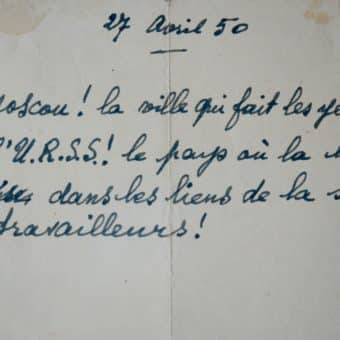 27 Avril 50
oscou! la ville qui fait les ye
l'U.R.S.S! le pays où la
dans les liens de la s
travailleurs!